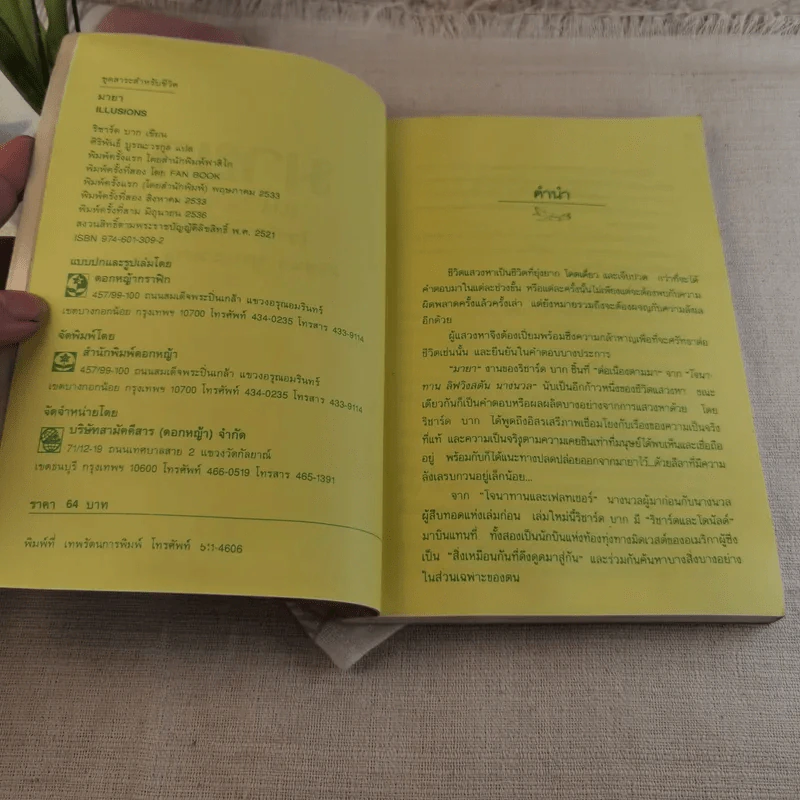 ชุดสาระสำหรับชีวิต
มายา
ILLUSIONS
ริชาร์ด บาก เขียน
ศิริพันธ์ บูรณะวรกูล แปล
พิมพ์ครั้งแรก โดยสำนักพิมพ์ฟาสิโก
พิมพ์ครั้งที่สอง โดย FAN BOOK
พิมพ์ครั้งแรก (โดยสำนักพิมพ์) พฤษภาคม 2533
พิมพ์ครั้งที่สอง สิงหาคม 2533
พิมพ์ครั้งที่สาม มิถุนายน 2536
สงวนสิทธิ์ตามพระราชบัญญัติลิขสิทธิ์ พ.ศ. 2521
ISBN 974-601-309-2
แบบปกและรูปเล่มโดย
ดอกหญ้ากราฟิก
457/99-100 ถนนสมเด็จพระปิ่นเกล้า แขวงอรุณอมรินทร์
เขตบางกอกน้อย กรุงเทพฯ 10700 โทรศัพท์ 434-0235 โทรสาร 433-9114
จัดพิมพ์โดย
สำนักพิมพ์ดอกหญ้า
457/99-100 ถนนสมเด็จพระปิ่นเกล้า แขวงอรุณอมรินทร์
เขตบางกอกน้อย กรุงเทพฯ 10700 โทรศัพท์ 434-0235 โทรสาร 433-9114
จัดจำหน่ายโดย
บริษัทสามัคคีสาร (ดอกหญ้า) จำกัด
71/12-19 ถนนเทศบาลสาย 2 แขวงวัดกัลยาณ์
เขตธนบุรี กรุงเทพฯ 10600 โทรศัพท์ 466-0519 โทรสาร 465-1391
ราคา 64 บาท
พิมพ์ที่ เทพรัตนการพิมพ์ โทรศัพท์ 511-4606
คำนำ
ชีวิตแสวงหาเป็นชีวิตที่ยุ่งยาก โดดเดี่ยว และเจ็บปวด กว่าที่จะได้
คำตอบมาในแต่ละช่วงขั้น หรือแต่ละครั้งนั้นไม่เพียงแต่จะต้องพบกับความ
ผิดพลาดครั้งแล้วครั้งเล่า แต่ยังหมายรวมถึงจะต้องผจญกับความลังเล
อีกด้วย
ผู้แสวงหาจึงต้องเปี่ยมพร้อมซึ่งความกล้าหาญเพื่อที่จะศรัทธาต่อ
ชีวิตเช่นนั้น และยืนยันในคำตอบบางประการ
"มายา" งานของริชาร์ด บาก ชิ้นที่ "ต่อเนื่องตามมา" จาก "โจนา-
ทาน ลิฟวิงสตัน นางนวล" นับเป็นอีกก้าวหนึ่งของชีวิตแสวงหา ขณะ
เดียวกันก็เป็นคำตอบหรือผลผลิตบางอย่างจากการแสวงหาด้วย โดย
ริชาร์ด บาก ได้พูดถึงอิสรเสรีภาพเชื่อมโยงกับเรื่องของความเป็นจริง
ที่แท้ และความเป็นจริงตามความเคยชินเท่าที่มนุษย์ได้พบเห็นและเชื่อถือ
อยู่ พร้อมกับก็ได้แนะทางปลดปล่อยออกจากมายาไว้...ด้วยลีลาที่มีความ
ลังเลรบกวนอยู่เล็กน้อย...
จาก "โจนาทานและเฟลทเชอร์" นางนวลผู้มาก่อนกับนางนวล
ผู้สืบทอดแห่งเล่มก่อน เล่มใหม่นี้ริชาร์ด บาก มี "ริชาร์ดและโดนัลด์"
มาบินแทนที่ ทั้งสองเป็นนักบินแห่งท้องทุ่งทางมิดเวสต์ของอเมริกาผู้ซึ่ง
เป็น "สิ่งเหมือนกันที่ดึงดูดมาสู่กัน" และร่วมกันค้นหาบางสิ่งบางอย่าง
ในส่วนเฉพาะของตน